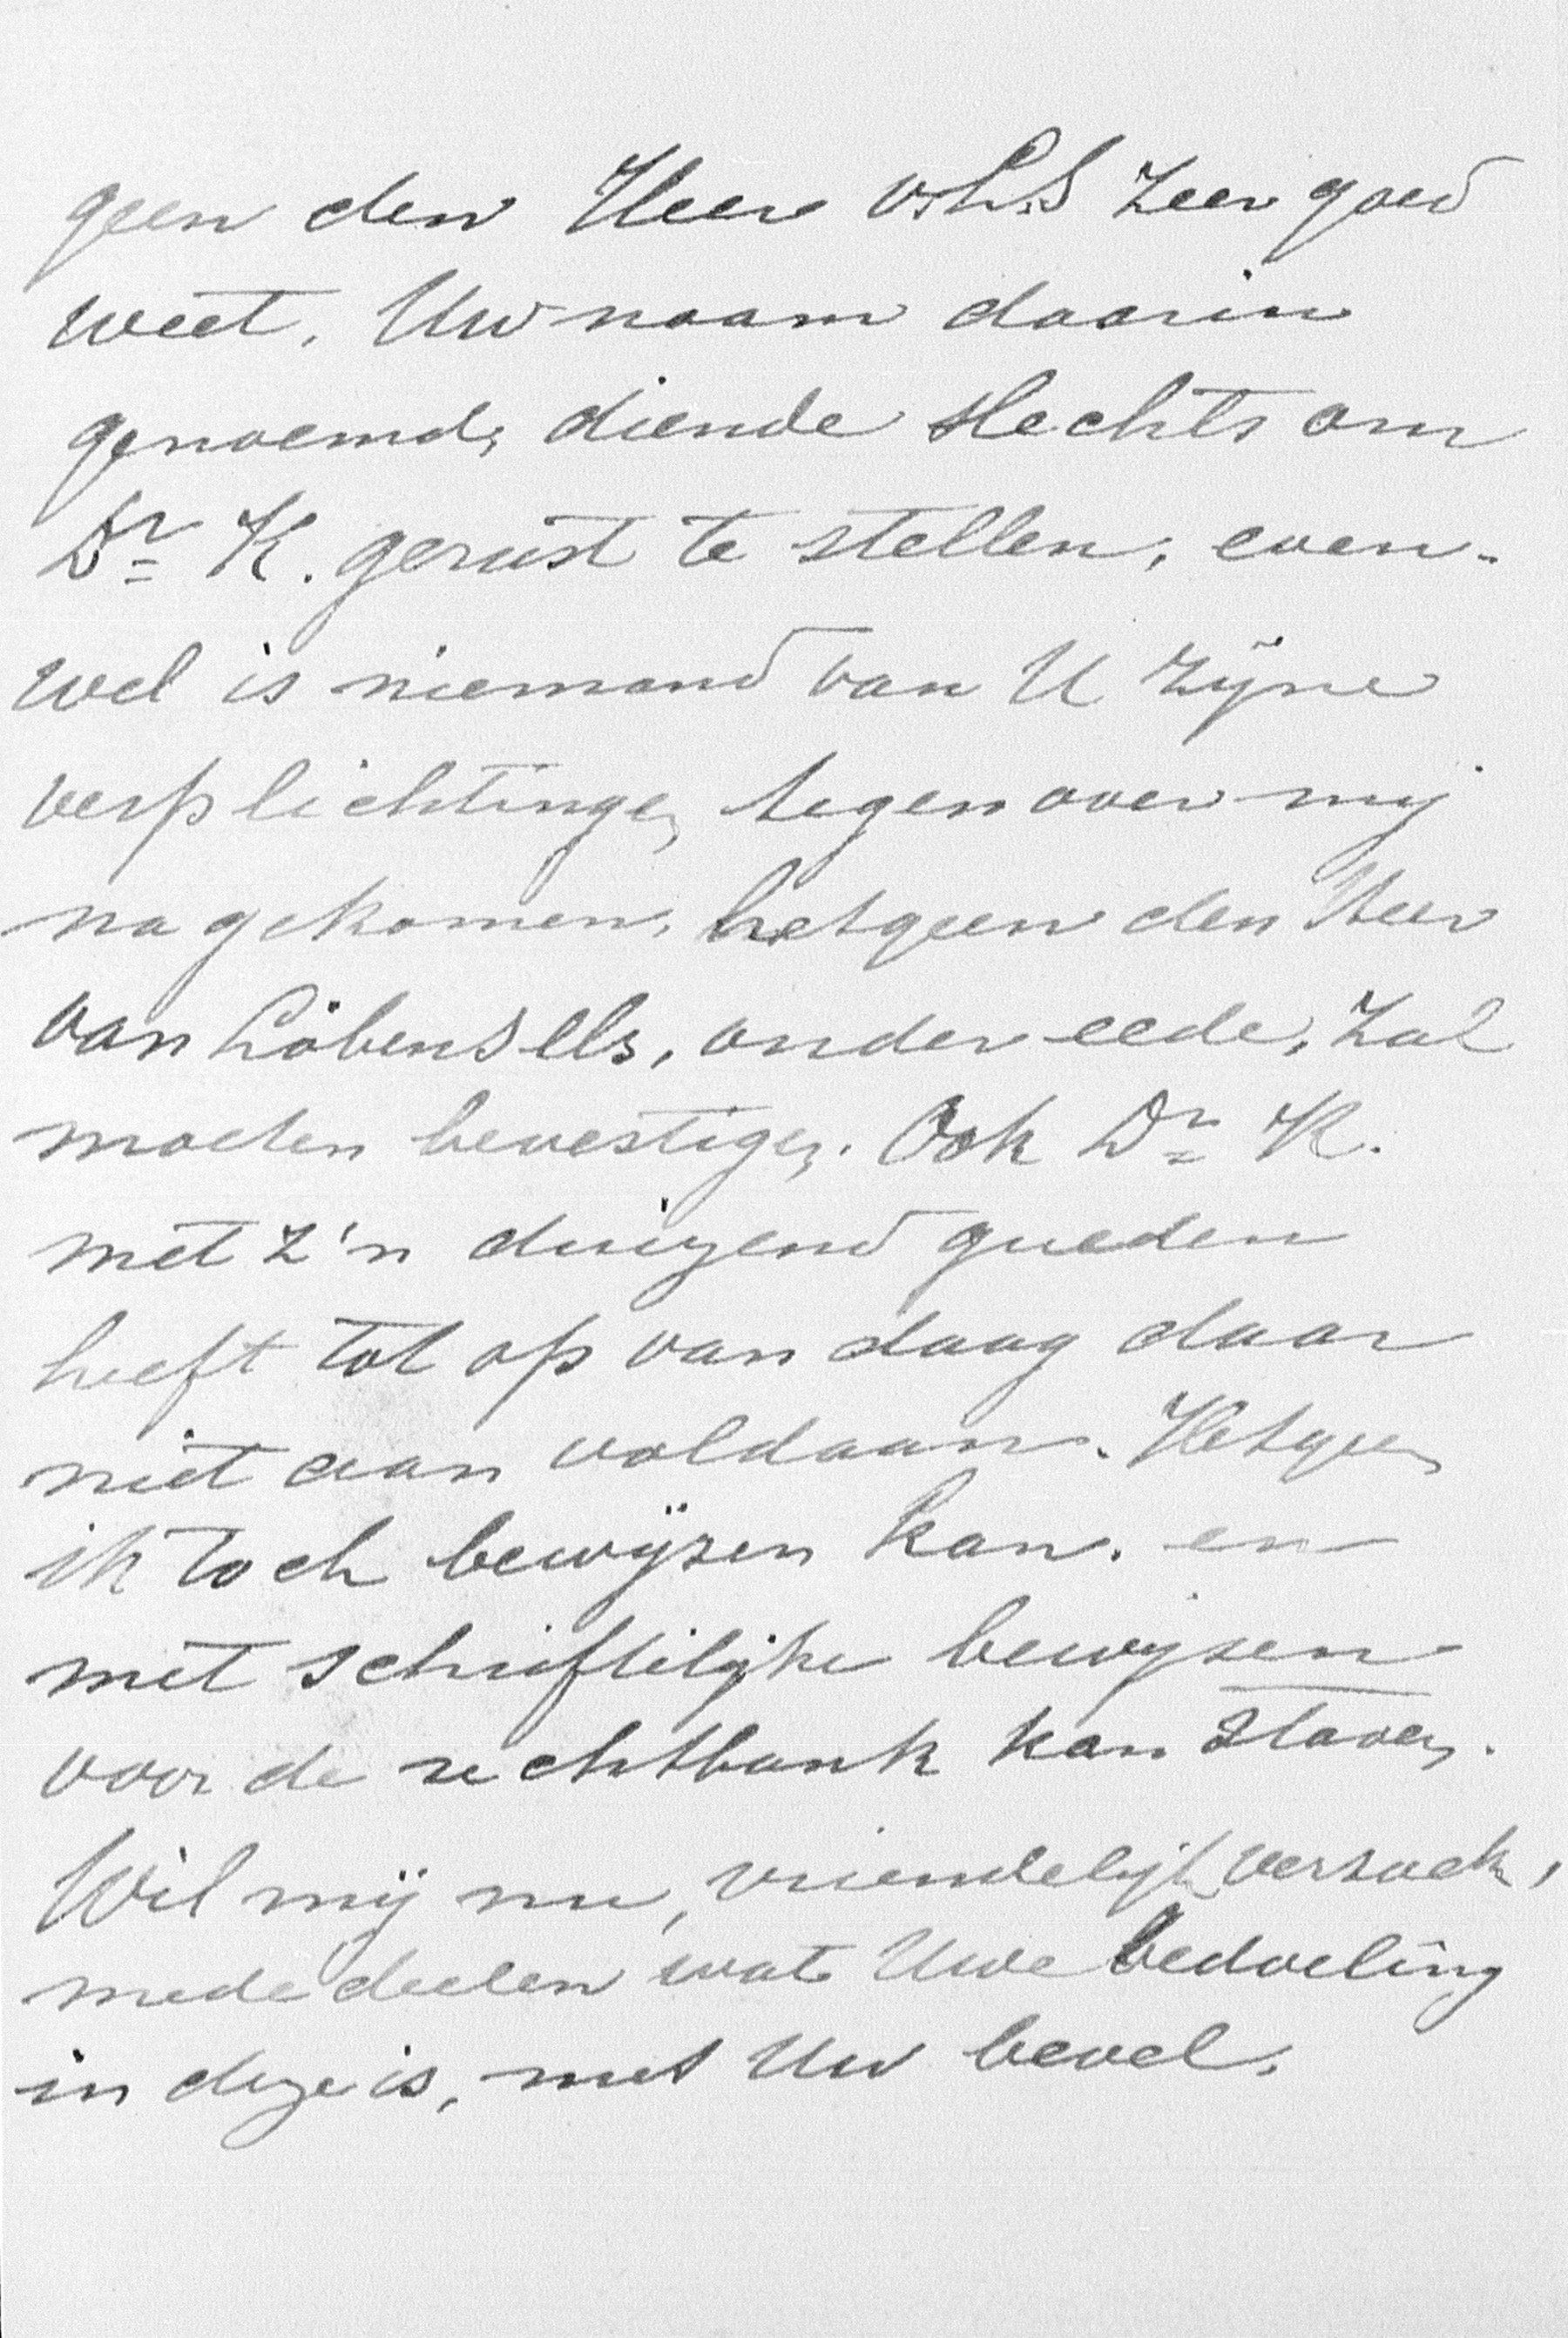 geen den Heer v.L.S zeer goed
weet. Uw naam daarin
genoemd, diende slechts om
Dr K. gerust te stellen, even-
wel is niemand van U zijne
verplichtingen tegenover mij
nagekomen, hetgeen den Heer
van Löben Sels, onder eede, zal
moeten bevestigen. Ook Dr K.
met z'n duizend gueden
heeft tot op van daag daar
niet aan voldaan. Hetgeen
ik toch bewijzen kan. en
met schriftelijke bewijsen
voor de rechtbank kan staven.
Wil mij nu, vriendelijk versoek,
mededeelen wat Uwe bedoeling
in deze is, met Uw bevel.